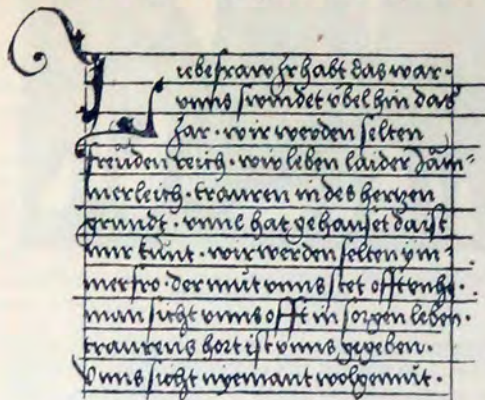 Liebe fraw Ir habt das war ·
vnns swindet vbel hin das
Jar · wir werden selten
freŭden reich · wir leben laider Jäm⸗
merleich · trauren in des hertzen
grundt · vnnl hat gehauset daist
mir kŭnt · wir werden selten ym⸗
mer fro · der mŭt vnns stet offt enhe ·
man sicht vnns offt in sorgen leben ·
traurens hort ist vnns gegeben ·
Vnns sicht nyemant wolgemŭt ·